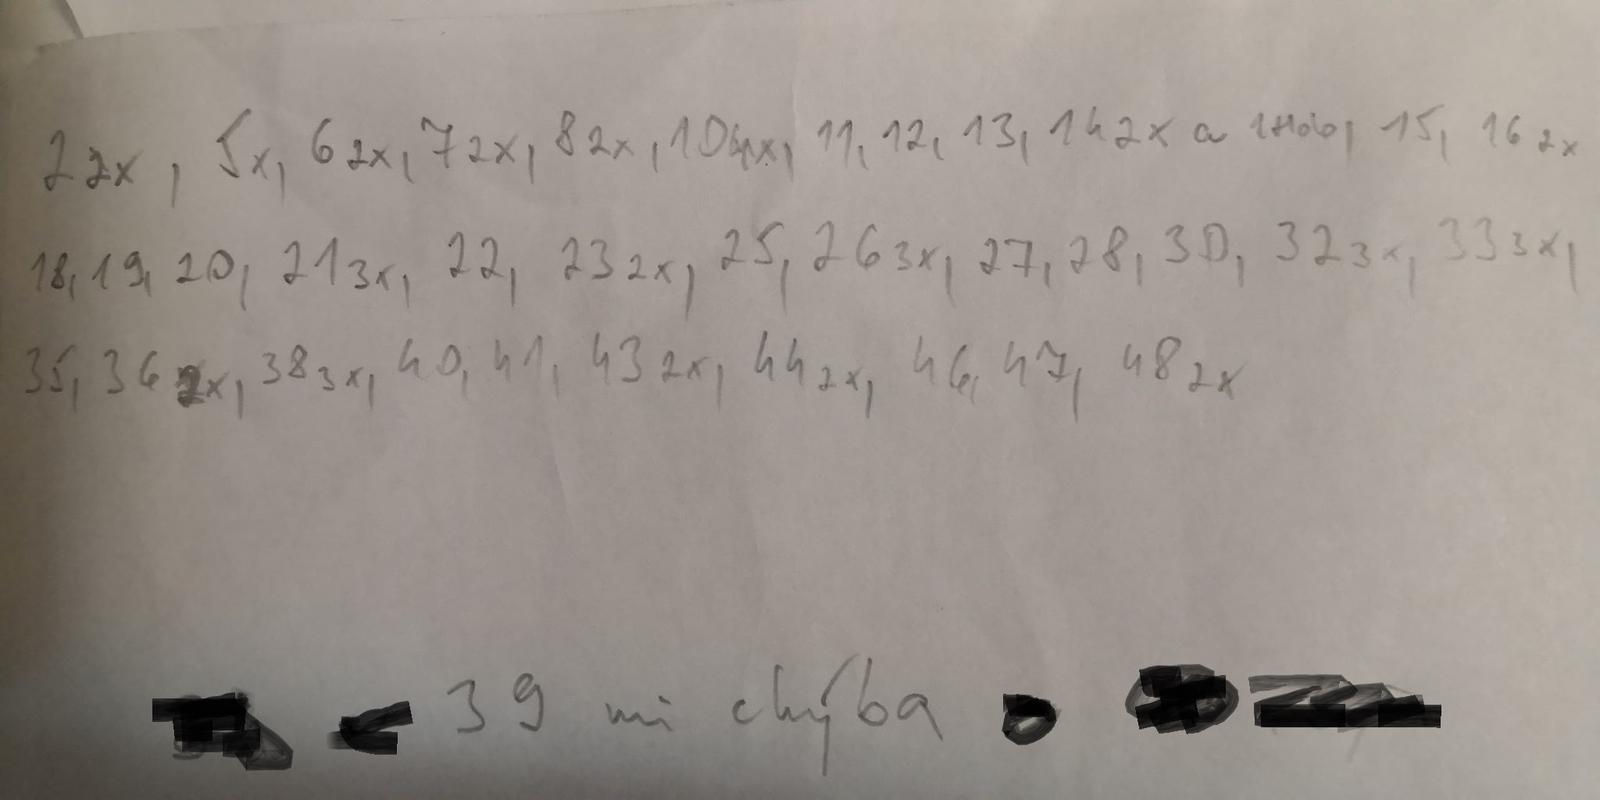 2 2x, 5x, 6 2x, 7 2x, 8 2x, 10 4x, 11, 12, 13, 14 2x a, 15, 16 2x
18, 19, 20, 21 3x, 22, 23 2x, 25, 26 3x, 27, 28, 30, 32 3x, 33 3x,
35, 36 2x, 38 3x, 40, 41, 43 2x, 44 2x, 46, 47, 48 2x
39 mi chýba